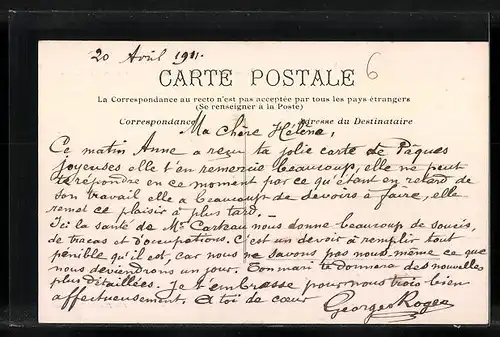 20 Avril 1911.
6
CARTE POSTALE
La Correspondance au recto n'est pas acceptée par tous les pays étrangers
(Se renseigner à la Poste)
Correspondance
Adresse du Destinataire
Ma chère Hélène,
Ce matin Anne a reçu ta jolie carte de Pâques
joyeuses elle t'en remercie beaucoup, elle ne peut
te répondre en ce moment par ce qu'étant en retard de
son travail elle a beaucoup de devoirs à faire, elle
remet ce plaisir à plus tard. —
Ici la santé de Mr Carteau nous donne beaucoup de soucis,
de tracas et d'occupations. C'est un devoir à remplir tout
pénible qu'il est, car nous ne savons pas nous même ce que
nous deviendrons un jour. Ton mari te donnera des nouvelles
plus détaillées. Je t'embrasse pour nous trois bien
affectueusement. À toi de cœur
Georges Roger